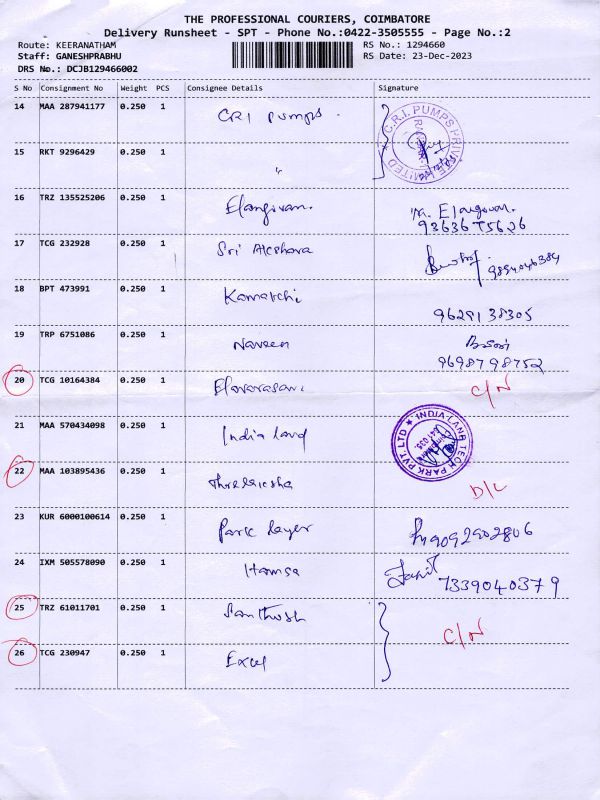 THE PROFESSIONAL COURIERS, COIMBATORE
Delivery Runsheet - SPT - Phone No.:0422-3505555 - Page No.:2
Route: KEERANATHAM RS No.: 1294660
Staff: GANESHPRABHU RS Date: 23-Dec-2023
DRS No.: DCJB129466002
S No Consignment No Weight PCS Consignee Details Signature
14 MAA 287941177 0.250 1 CRI Pumps C.R.I. PUMPS PRIVATE LIMITED
15 RKT 9296429 0.250 1 "
16 TRZ 135525206 0.250 1 Elangovan. M. Elangovan.
93636 75626
17 TCG 232928 0.250 1 Sri
18 BPT 473991 0.250 1 Kamatchi 9629138305
19 TRP 6751086 0.250 1 Naveen நவீன்
9698798752
20 TCG 10164384 0.250 1 Elavarasan C/N
21 MAA 570434098 0.250 1 India land INDIA LAND TECH PARK PVT. LTD
22 MAA 103895436 0.250 1 D/L
23 KUR 6000100614 0.250 1 Park layer 9092902806
24 IXM 505578090 0.250 1 Hamsa 7339040379
25 TRZ 61011701 0.250 1 Santhosh C/N
26 TCG 230947 0.250 1 Excel